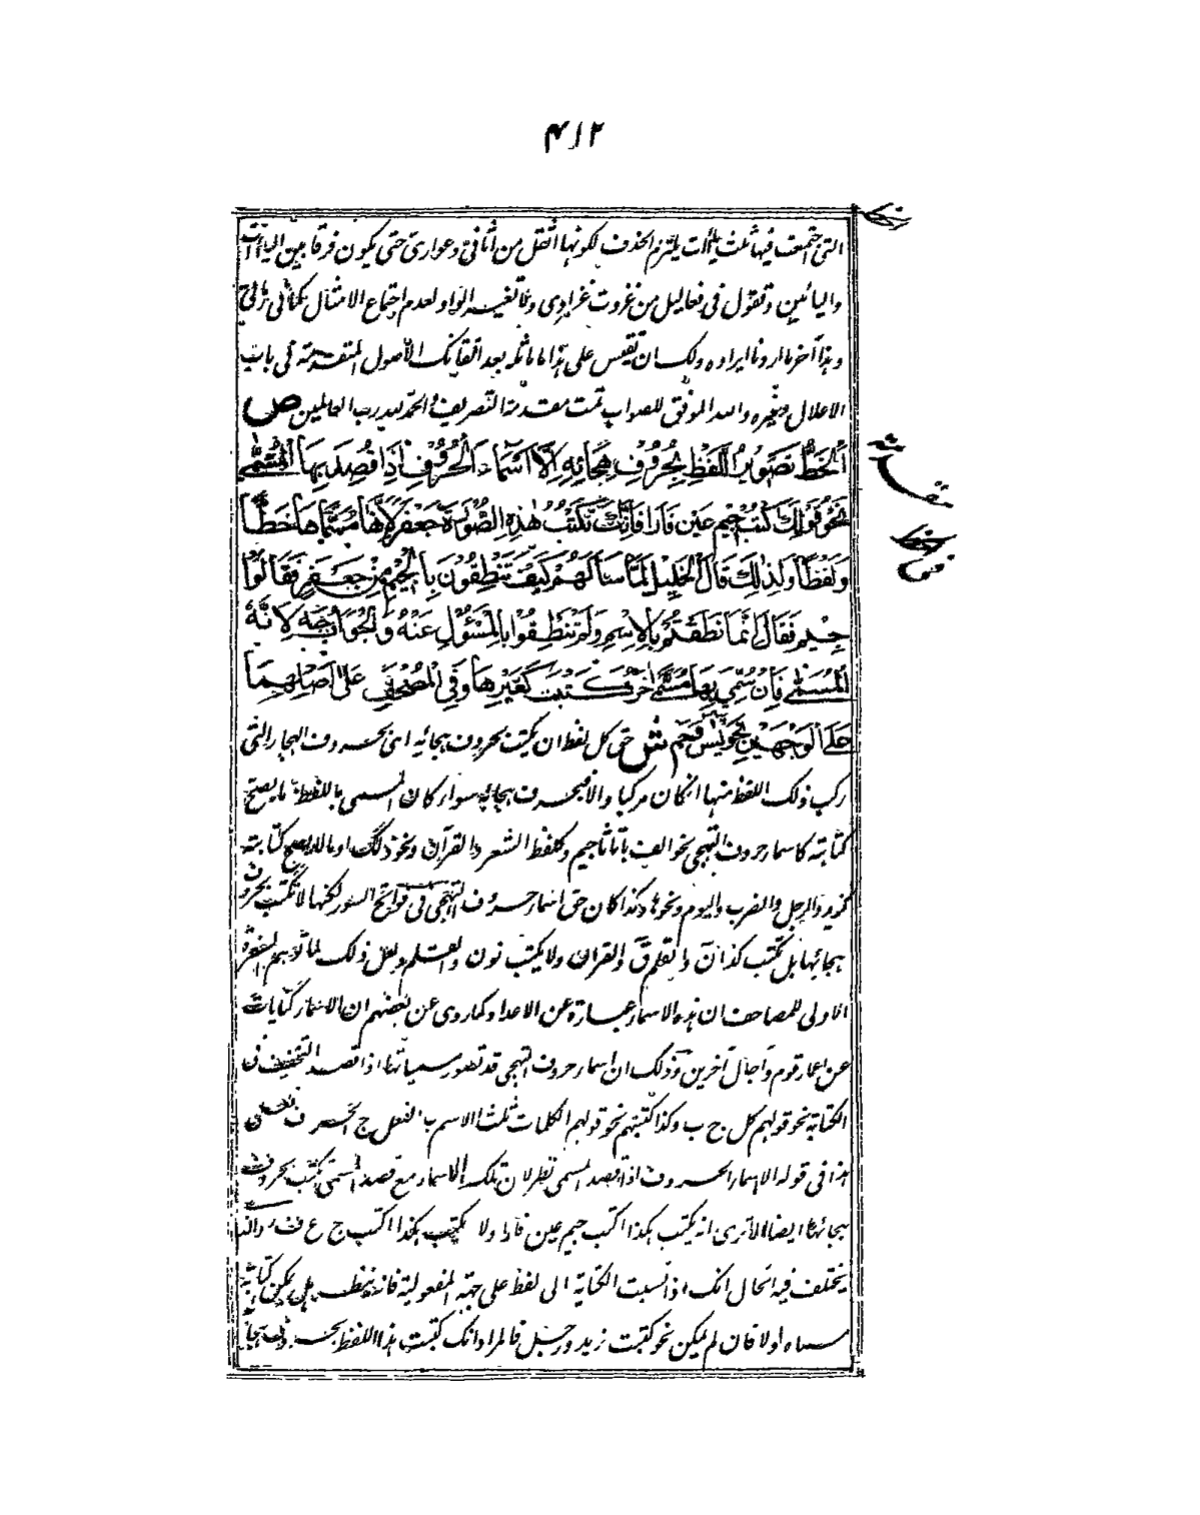 ۴۱۲
الخط
التي اجتمعت فيها ثلث ياءات يلتزم الحذف لكونها اثقل من أثافيّ وعواريّ حتى يكون فرقا بين الياآت
واليائين وتقول في فعاليل من غزوت غزاوي ولا تغير الواو لعدم اجتماع الامثال كما في
وهذا آخر ما اردنا ايراده ولك ان تقيس على هذا ما ماثله بعد اتقانك الأصول المتقدمة في باب
الاعلال وغيره والله الموفق للصواب تمت مقدمة التصريف والحمد لله رب العالمين ص
اَلْخَطُّ تَصْوِيْرُ اللَّفْظِ بِحُرُوْفِ هِجَائِهٖ اِلَّا اَسْمَاءَ الْحُرُوْفِ اِذَا قُصِدَ بِهَا الْمُسَمّٰى
نَحْوُ قَوْلِكَ اُكْتُبْ جِيْم عَيْن فَا رَا فَاِنَّكَ تَكْتُبُ هٰذِهِ الصُّوْرَةَ جَعْفَر لِاَنَّهَا مُسَمَّاهَا خَطًّا
وَلَفْظًا وَلِذٰلِكَ قَالَ الْخَلِيْلُ لَمَّا سَاَلَهُمْ كَيْفَ تَنْطِقُوْنَ بِالْجِيْمِ مِنْ جَعْفَرٍ فَقَالُوْا
جِيْم فَقَالَ اِنَّمَا نَطَقْتُمْ بِالْاِسْمِ وَلَمْ تَنْطِقُوْا بِالْمَسْئُوْلِ عَنْهُ وَالْجَوَابُ جَهْ لِاَنَّهُ
الْمُسَمّٰى فَاِنْ سُمِّيَ بِهَا مُسَمًّى اٰخَرُ كُتِبَتْ كَغَيْرِهَا وَفِي الْمُصْحَفِ عَلٰى اَصْلِهِمَا
عَلَى الْوَجْهَيْنِ نَحْوُ يٰسٓ وَحٰمٓ ش حق كل لفظ ان يكتب بحروف هجائه اى بحروف الهجاء التي
ركب ذلك اللفظ منها ان كان مركبا والا فبحرف هجائه سواء كان المسمى باللفظ مما يصح
كتابته كاسماء حروف التهجي نحو الف با تا ثا جيم وكلفظ الشعر والقرآن ونحو ذلك او مما لا يصح كتابته
كزيد والرجل والضرب واليوم ونحوها وكذا كان حق اسماء حروف التهجي في فواتح السور لكنها لا تكتب بحروف
هجائها بل تكتب كذا نٓ والقلم قٓ والقران ولا يكتب نون والقلم ولعل ذلك لما توهم السفرة
الاولى للمصاحف ان هذه الاسماء عبارة عن الاعداد كما روى عن بعضهم ان الاسماء كنايات
عن اعمار قوم وآجال آخرين وذلك ان اسماء حروف التهجي قد تصور مسمياتها اذا قصد التخفيف في
الكتابة نحو قولهم كل ج ب وكذا كتبتهم نحو قولهم الكلمات ثلث ا الاسم ب الفعل ج الحرف
هذا في قوله الا اسماء الحروف اذا قصد المسمى نظر لان تلك الاسماء مع قصد المسمى تكتب بحروف
هجائها ايضا الا ترى انه يكتب هكذا اكتب جيم عين فا را ولا يكتب هكذا اكتب ج ع ف ر والذي
يختلف فيه الحال انك اذا نسبت الكتابة الى لفظ على جهة المفعولية فانه ينظر هل يمكن كتابة
مسماه اولا فان لم يمكن نحو كتبت زيد ورجل فالمراد انك كتبت هذا اللفظ بحروف هجائه